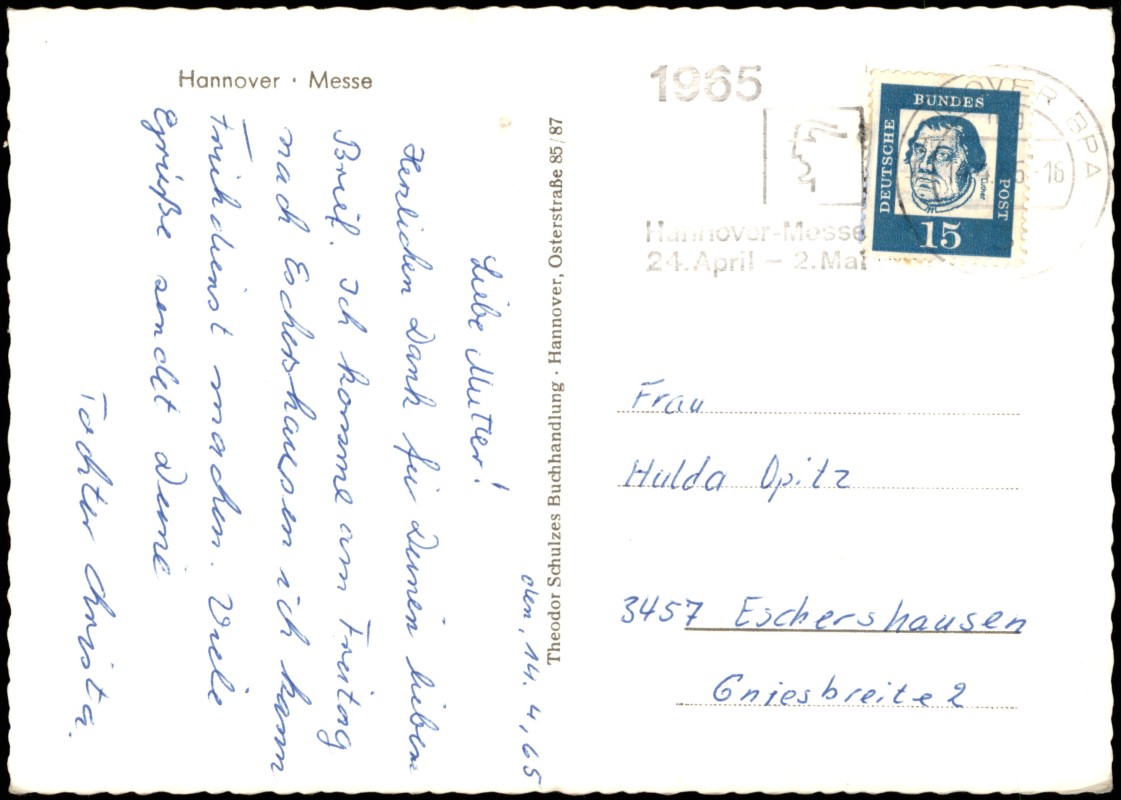 Hannover · Messe
den, 14. 4, 65
Liebe Mutter!
Herzlichen Dank für Deinen lieben
Brief. Ich komme am Freitag
nach Eschershausen ich kann
Frühdienst machen. Viele
Grüße sendet Deine
Tochter Christa.
Theodor Schulzes Buchhandlung · Hannover, Osterstraße 85/87
1965
Hannover-Messe
24. April – 2. Mai
OVER BPA
-16
DEUTSCHE
BUNDES
POST
15
Frau
Hulda Opitz
3457 Eschershausen
Griesbreite 2